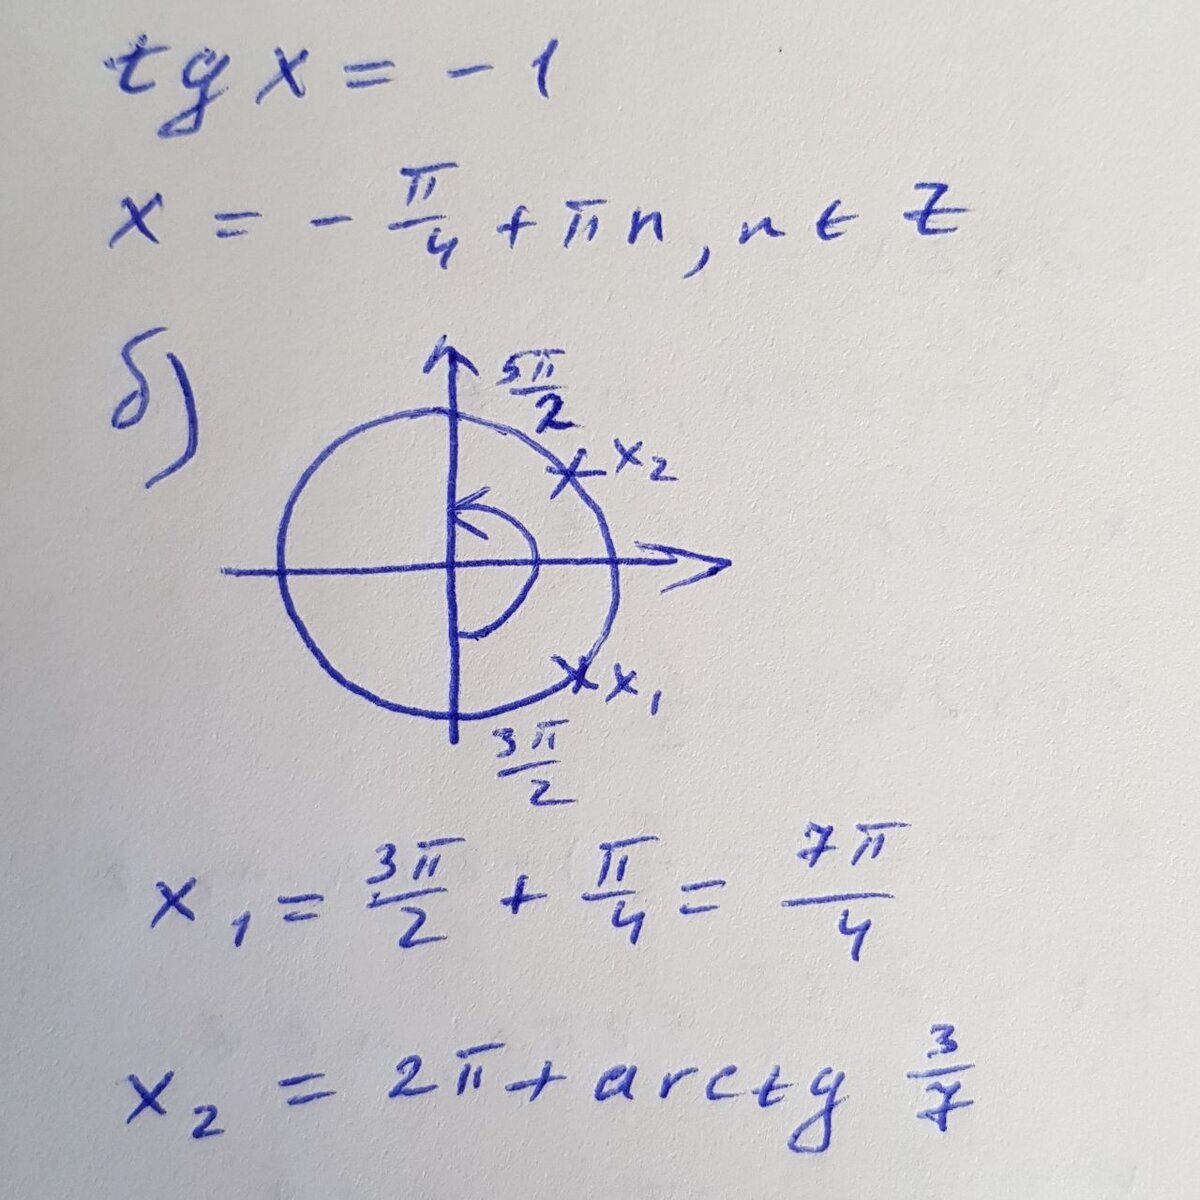 tg x = - 1
x = - π/4 + πn, n ∈ Z
б)
5π/2
x₂
x₁
3π/2
x₁ = 3π/2 + π/4 = 7π/4
x₂ = 2π + arctg 3/7